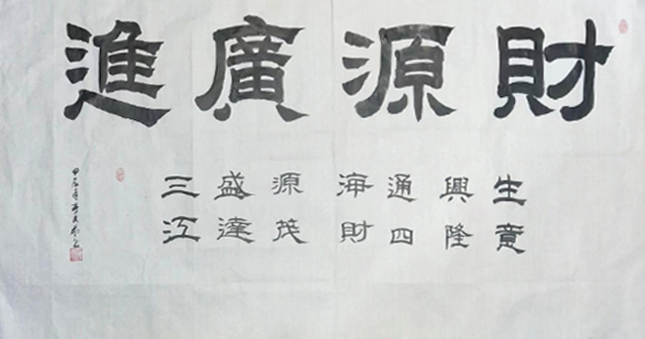 財源廣進
生意
興隆
通四
海財
源茂
盛達
三江
甲辰年